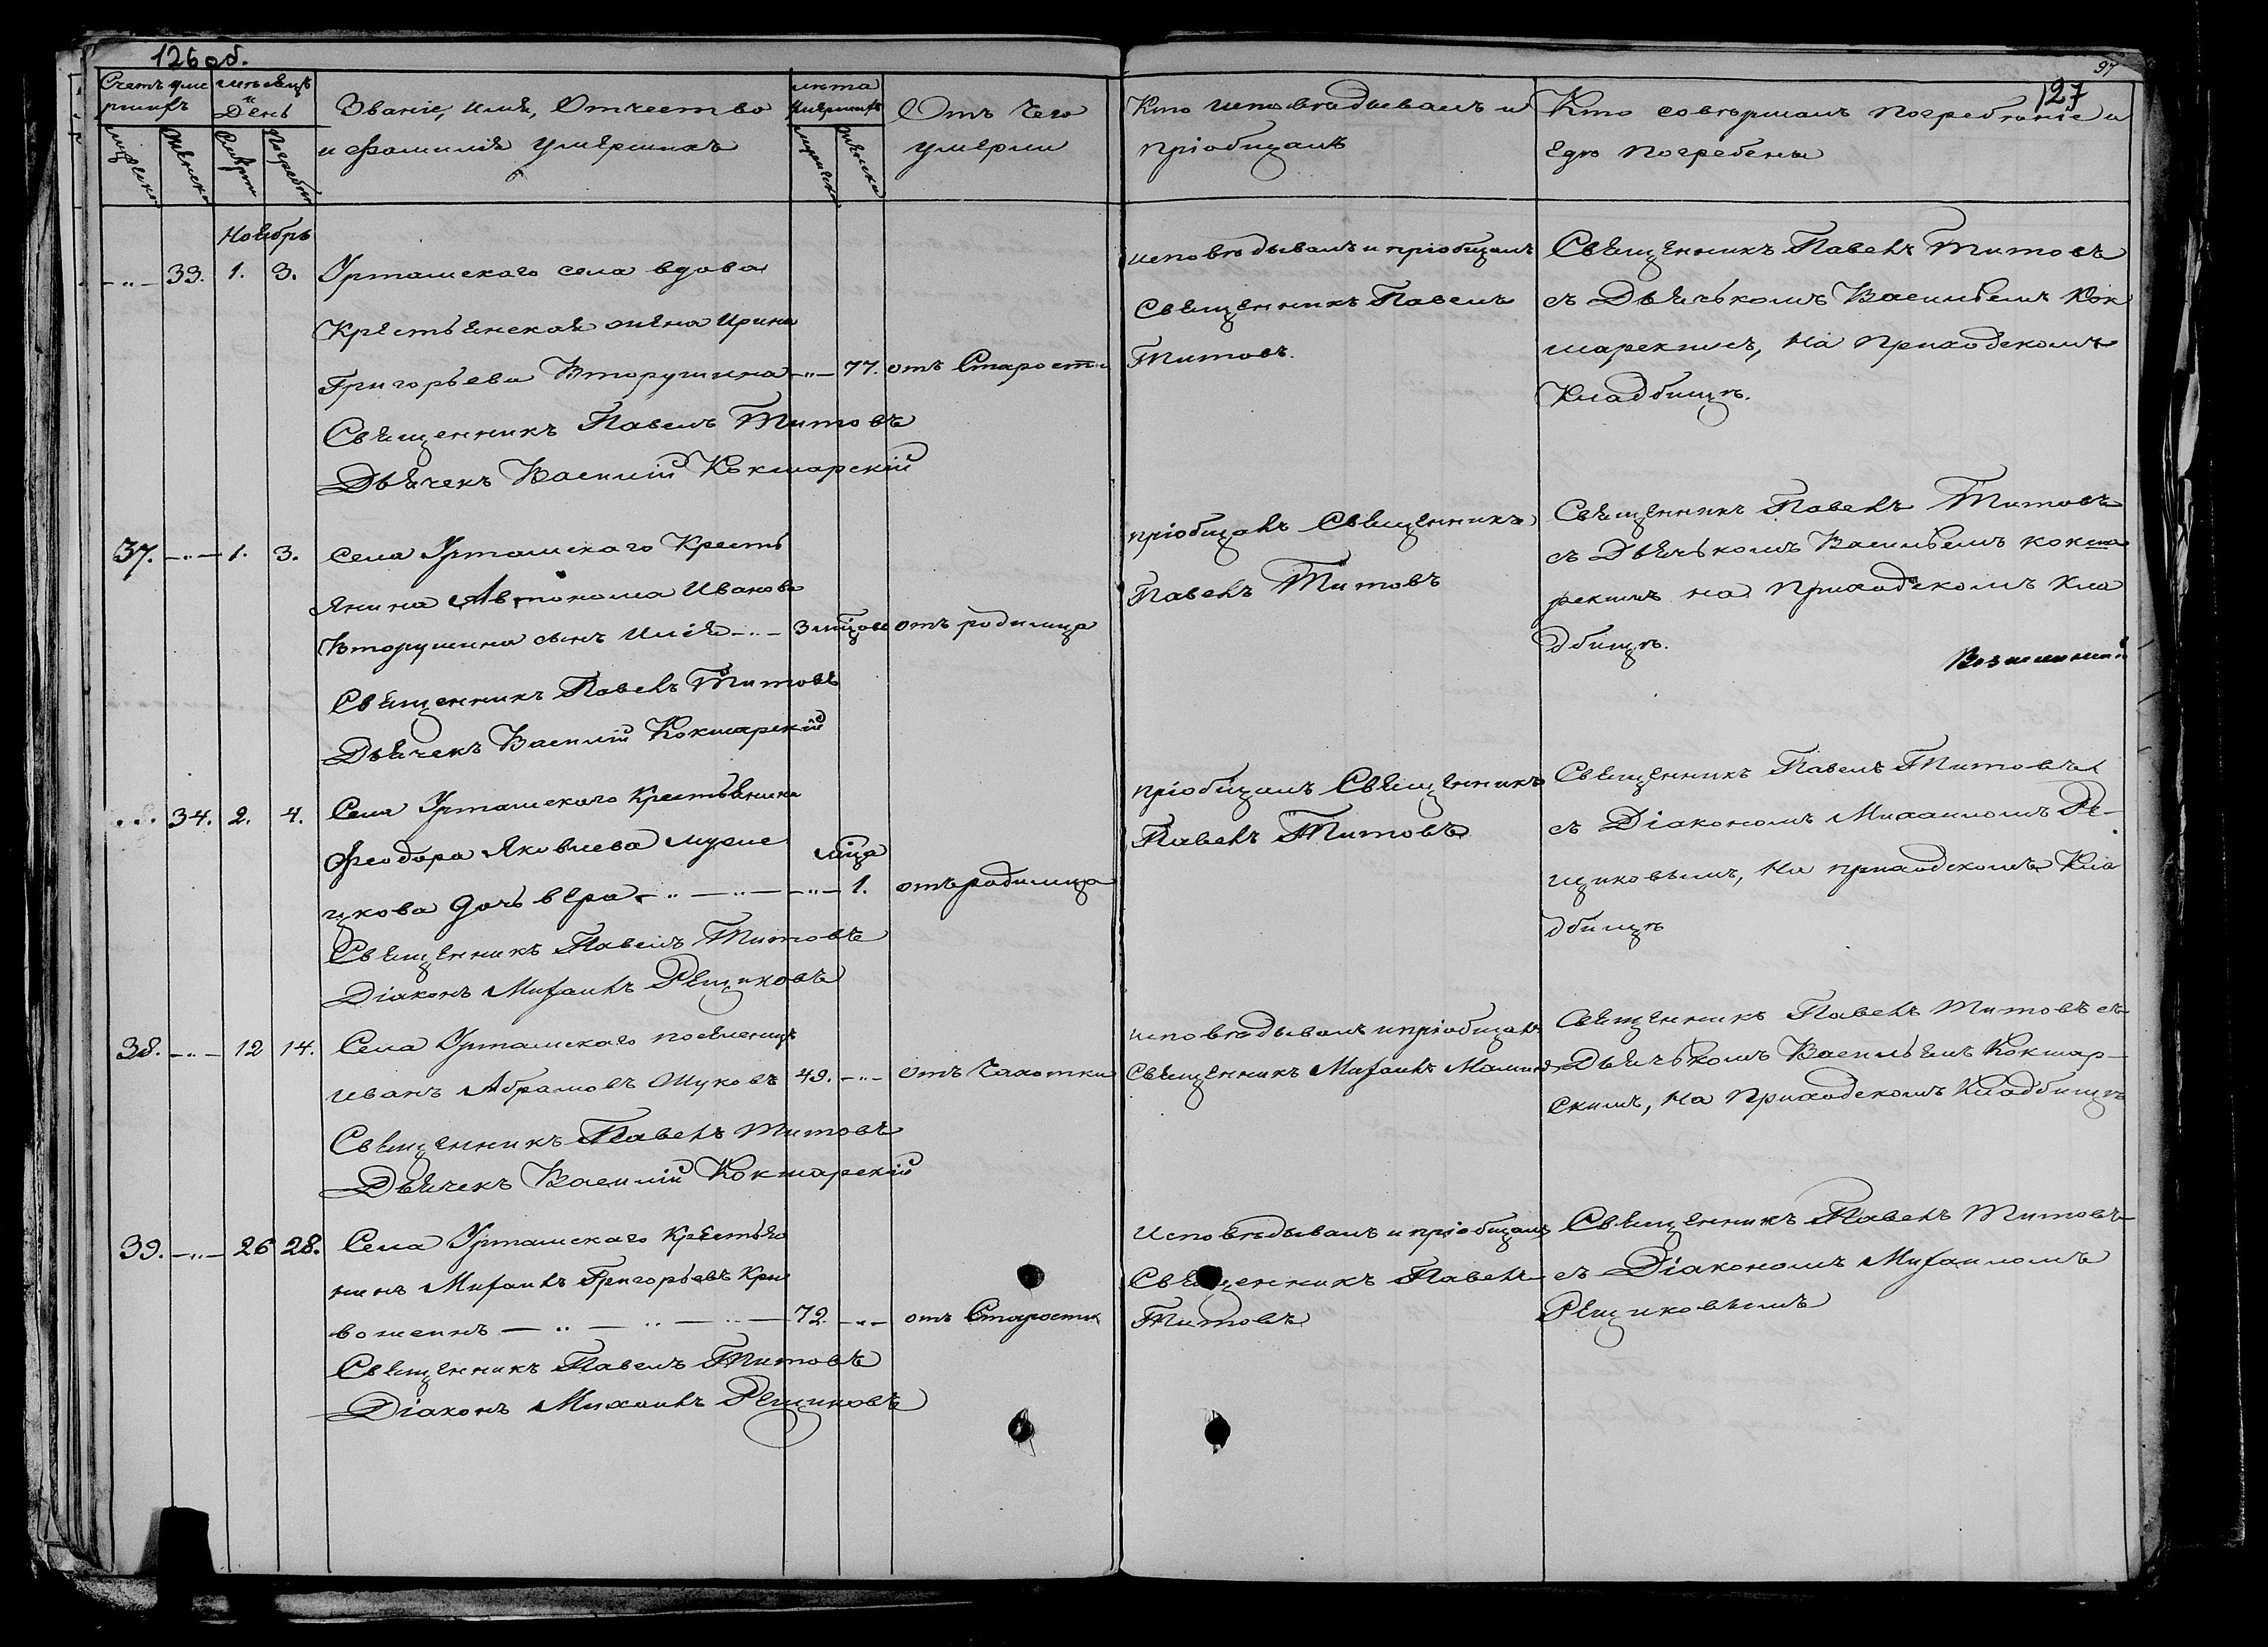 126 об.
97
127
Счетъ уме
ршихъ
мѣсяцъ
и
День
Званіе, имя, Отчество
и фамилія умершихъ
лѣта
умершихъ
Отъ чего
умерли
Кто исповѣдывалъ и
пріобщалъ
Кто совершалъ погребеніе и
гдѣ погребены
мужеска
Женска
Смерти
Погребен
мужеска
женска
Ноябрь
-"- 33. 1. 3. Урташскаго села вдова
Крестьянская жена Ирина
Григорьева Вторушина -"- 77. отъ Старости
Священникъ Павелъ Титовъ
Дьячекъ Василій Кокшарскій
исповѣдывалъ и пріобщалъ
Священникъ Павелъ
Титовъ.
Священникъ Павелъ Титовъ
съ Дьячькомъ Васильемъ Кок
шарскимъ, На Приходскомъ
Кладбищѣ.
37. -"- 1. 3. Села Урташскаго Кресть
янина Автонома Иванова
Вторушина сынъ Илія -"- 3 мѣцов отъ родимца
Священникъ Павелъ Титовъ
Дьячекъ Василій Кокшарскій
пріобщалъ Священникъ
Павелъ Титовъ
Священникъ Павелъ Титовъ
съ Дьячькомъ Васильемъ кокша
рскимъ на Приходскомъ кла
дбищѣ.
-"- 34. 2. 4. Села Урташскаго Крестьянина
Феодора Яковлева Муже
мѣца
цкова дочь вера -"- -"- -"- 1. отъ родимца
Священникъ Павелъ Титовъ
Діаконъ Михаилъ Рещиковъ
пріобщалъ Священникъ
Павелъ Титовъ
Священникъ Павелъ Титовъ
съ Діакономъ Михаиломъ Ре-
щиковымъ, На приходскомъ Кла
дбищѣ
38. -"- 12 14. Села Урташскаго поселенецъ
иванъ Абрамовъ Жуковъ 49. -"- Отъ Чахотки
Священникъ Павелъ Титовъ
Дьячекъ Василій Кокшарскій
исповѣдывалъ и пріобщалъ
Священникъ Михаилъ
Священникъ Павелъ Титовъ съ
Дьячькомъ Васильемъ Кокшар-
скимъ, На Приходскомъ Кладбищѣ
39. -"- 26 28. Села Урташскаго Крестья
нинъ Михаилъ Григорьевъ Кри
вошеинъ -"- -"- 72. -"- отъ Старости
Священникъ Павелъ Титовъ
Діаконъ Михаилъ Рещиковъ
Исповѣдывалъ и пріобщалъ
Священникъ Павелъ
Титовъ
Священникъ Павелъ Титовъ
съ Діакономъ Михаиломъ
Рещиковымъ